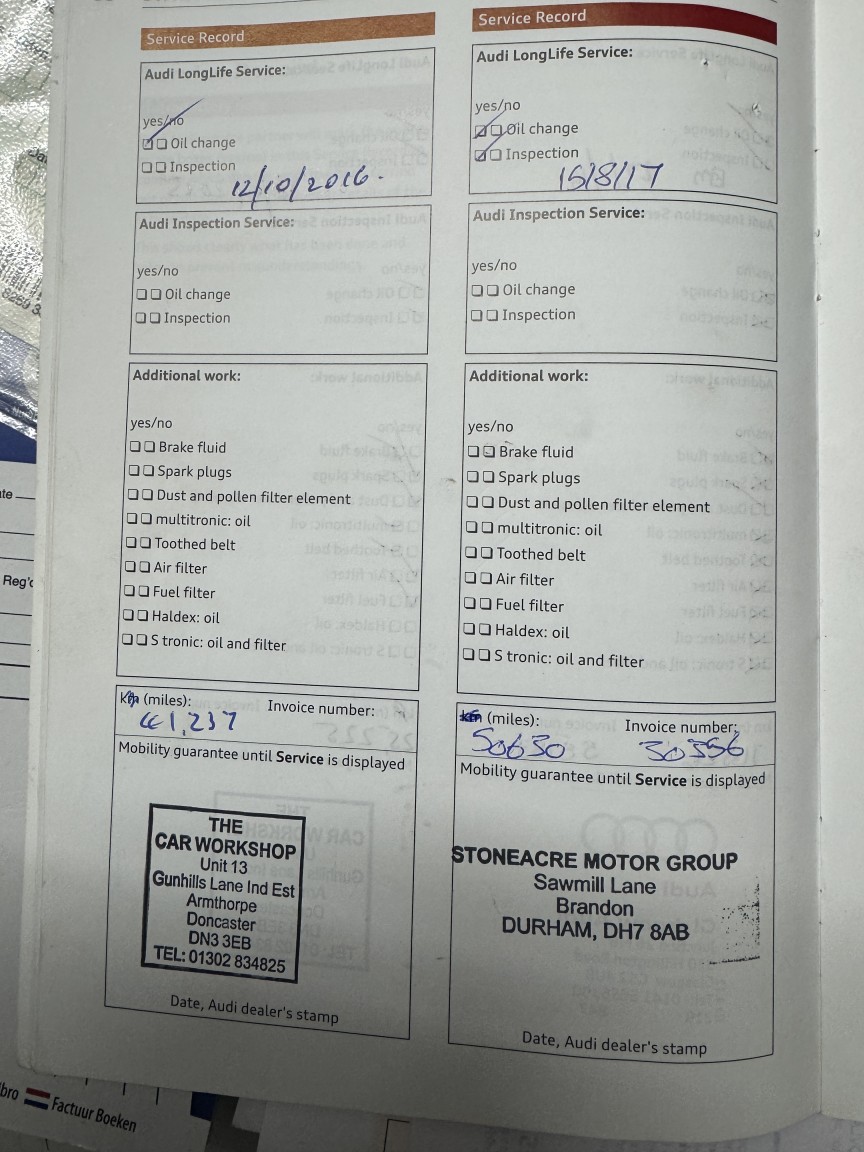 Service Record
Audi LongLife Service:
yes/no
Oil change
Inspection
12/10/2016.
Audi Inspection Service:
yes/no
Oil change
Inspection
Additional work:
yes/no
Brake fluid
Spark plugs
Dust and pollen filter element
multitronic: oil
Toothed belt
Air filter
Fuel filter
Haldex: oil
S tronic: oil and filter
km (miles):
Invoice number:
41,237
Mobility guarantee until Service is displayed
THE
CAR WORKSHOP
Unit 13
Gunhills Lane Ind Est
Armthorpe
Doncaster
DN3 3EB
TEL: 01302 834825
Date, Audi dealer's stamp
Service Record
Audi LongLife Service:
yes/no
Oil change
Inspection
15/8/17
Audi Inspection Service:
yes/no
Oil change
Inspection
Additional work:
yes/no
Brake fluid
Spark plugs
Dust and pollen filter element
multitronic: oil
Toothed belt
Air filter
Fuel filter
Haldex: oil
S tronic: oil and filter
km (miles):
Invoice number:
50630 30356
Mobility guarantee until Service is displayed
STONEACRE MOTOR GROUP
Sawmill Lane
Brandon
DURHAM, DH7 8AB
Date, Audi dealer's stamp
Reg'd
Factuur Boeken